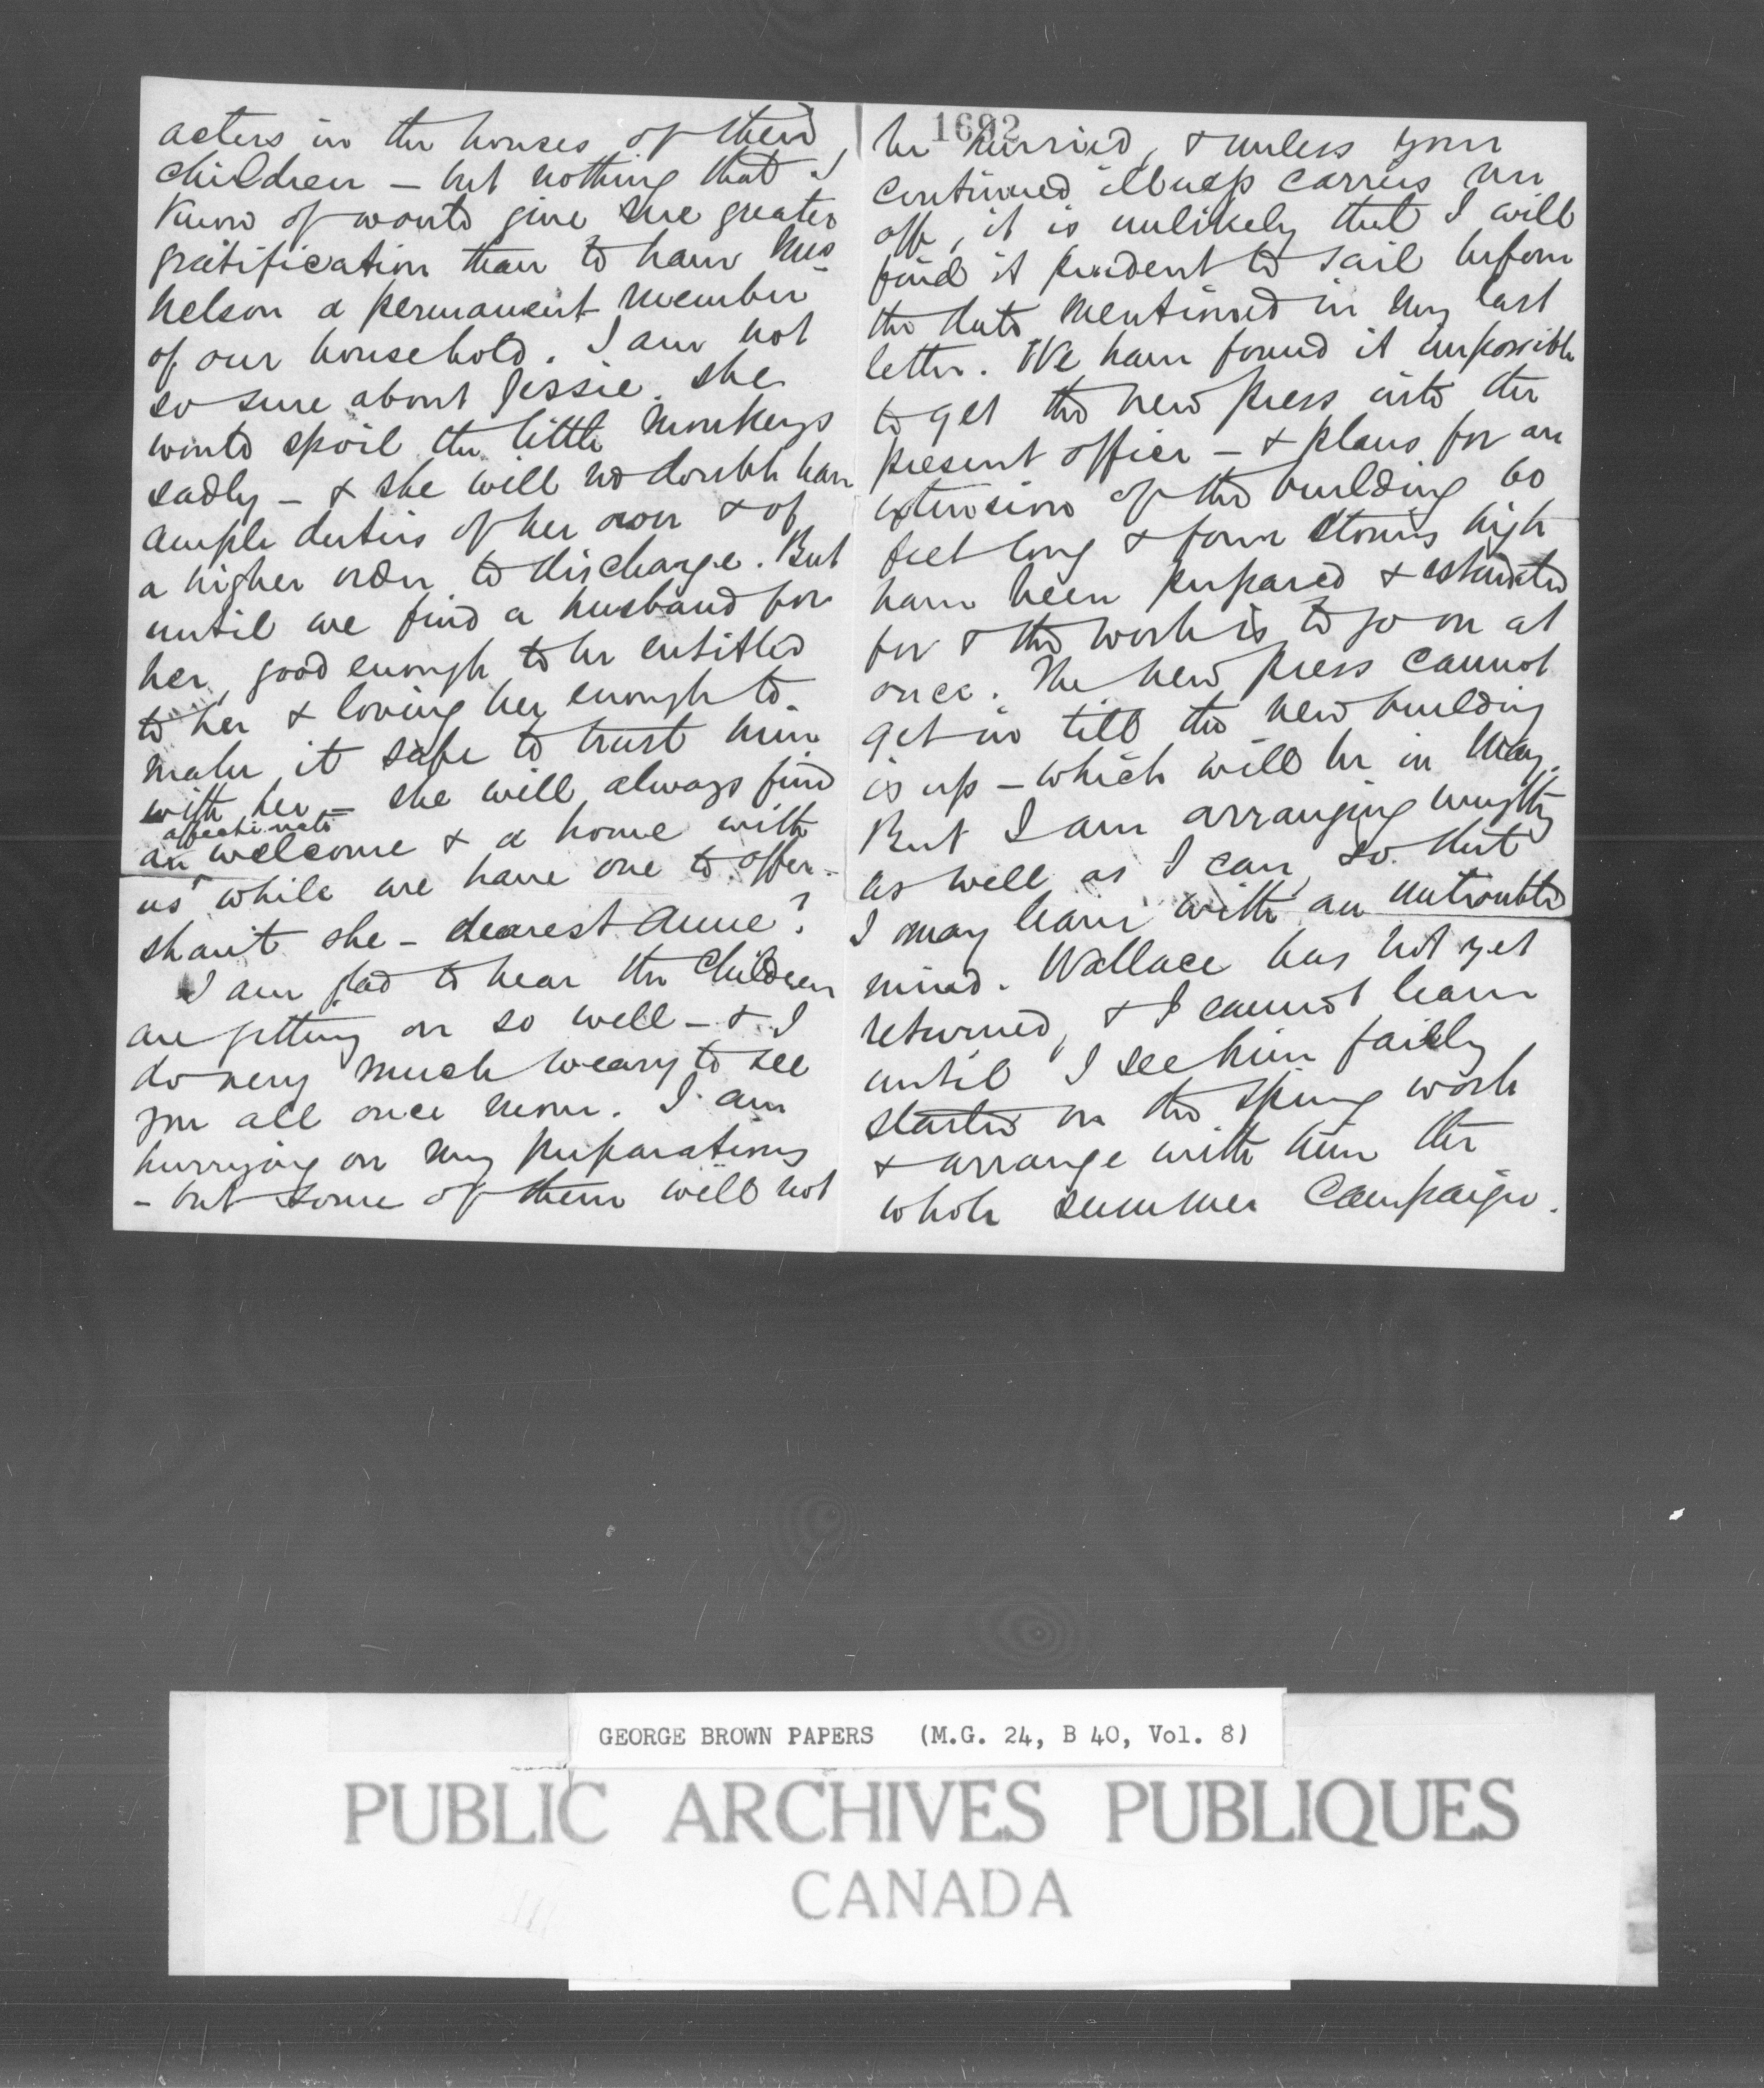 acters in the houses of their
children – but nothing that I
know of would give me greater
gratification than to have Mrs
Nelson a permanent member
of our household. I am not
so sure about Jessie. She
would spoil the little monkeys
sadly – & she will no doubt have
ample duties of her own & of
a higher order to discharge. But
until we find a husband for
her, good enough to be entitled
to her & loving her enough to
make it safe to trust him
with her – she will always find
affectionate
an welcome & a home with
us while we have one to offer –
shan't she – dearest Anne?
I am glad to hear the children
are getting on so well – & I
do very much weary to see
you all once more. I am
hurrying on my preparations
– but some of them will not
1692
be hurried, & unless your
continued illness carries me
off, it is unlikely that I will
find it prudent to sail before
the date mentioned in my last
letter. We have found it impossible
to get the new press into the
present office – & plans for an
extension of the building 60
feet long & four stories high
have been prepared & estimated
for & the work is to go on at
once. The new press cannot
get in till the new building
is up – which will be in May.
But I am arranging everything
as well as I can, so that
I may leave with an untroubled
mind. Wallace has not yet
returned, & I cannot leave
until I see him fairly
started on the Spring work
& arrange with him the
whole summer Campaign.
GEORGE BROWN PAPERS (M.G. 24, B 40, Vol. 8)
PUBLIC ARCHIVES PUBLIQUES
CANADA